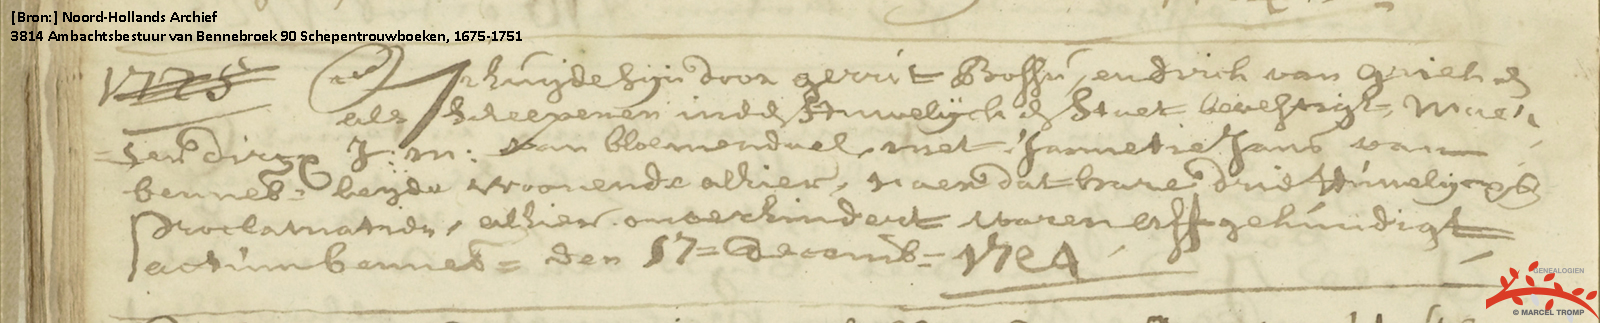 [Bron:] Noord-Hollands Archief
3814 Ambachtsbestuur van Bennebroek 90 Schepentrouwboeken, 1675-1751
1725 sijn door gerrit Bossú, endrick van
als Scheepenen inde Huwelijck Staet bevestigt, Mae
sen dircx J: m: van bloemendael, met Jannetie Jans van
benneb= beijde woonende alhier, naer dat hare drie Húwelijcx
Proclamatien, alhier onverhindert waren aff gekúndigt
actúm benneb= den 17= decemb= 1724
GENEALOGIEN
© MARCEL TROMP